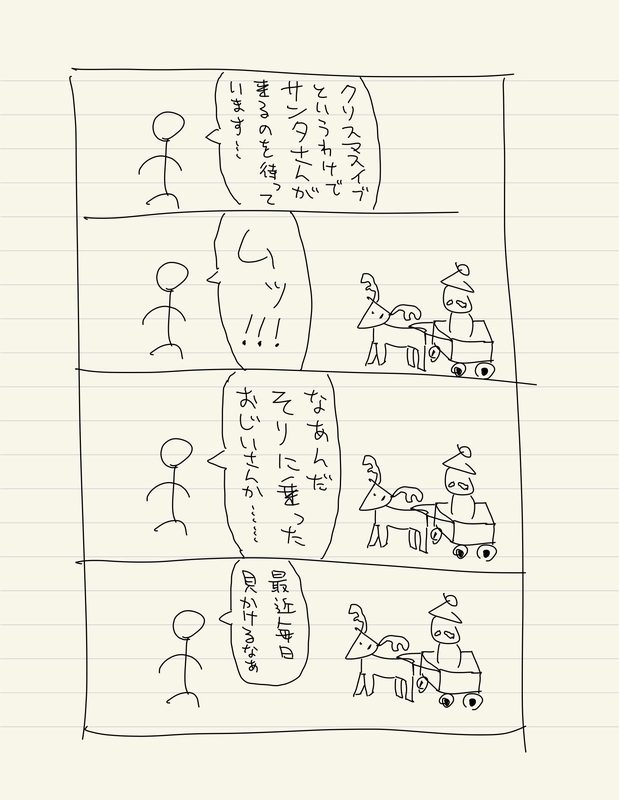 クリスマスイブ
というわけで
サンタさんが
来るのを待って
います…
ムッ
!!!
なあんだ
そりに乗った
おじいさんか……
最近毎日
見かけるなあ